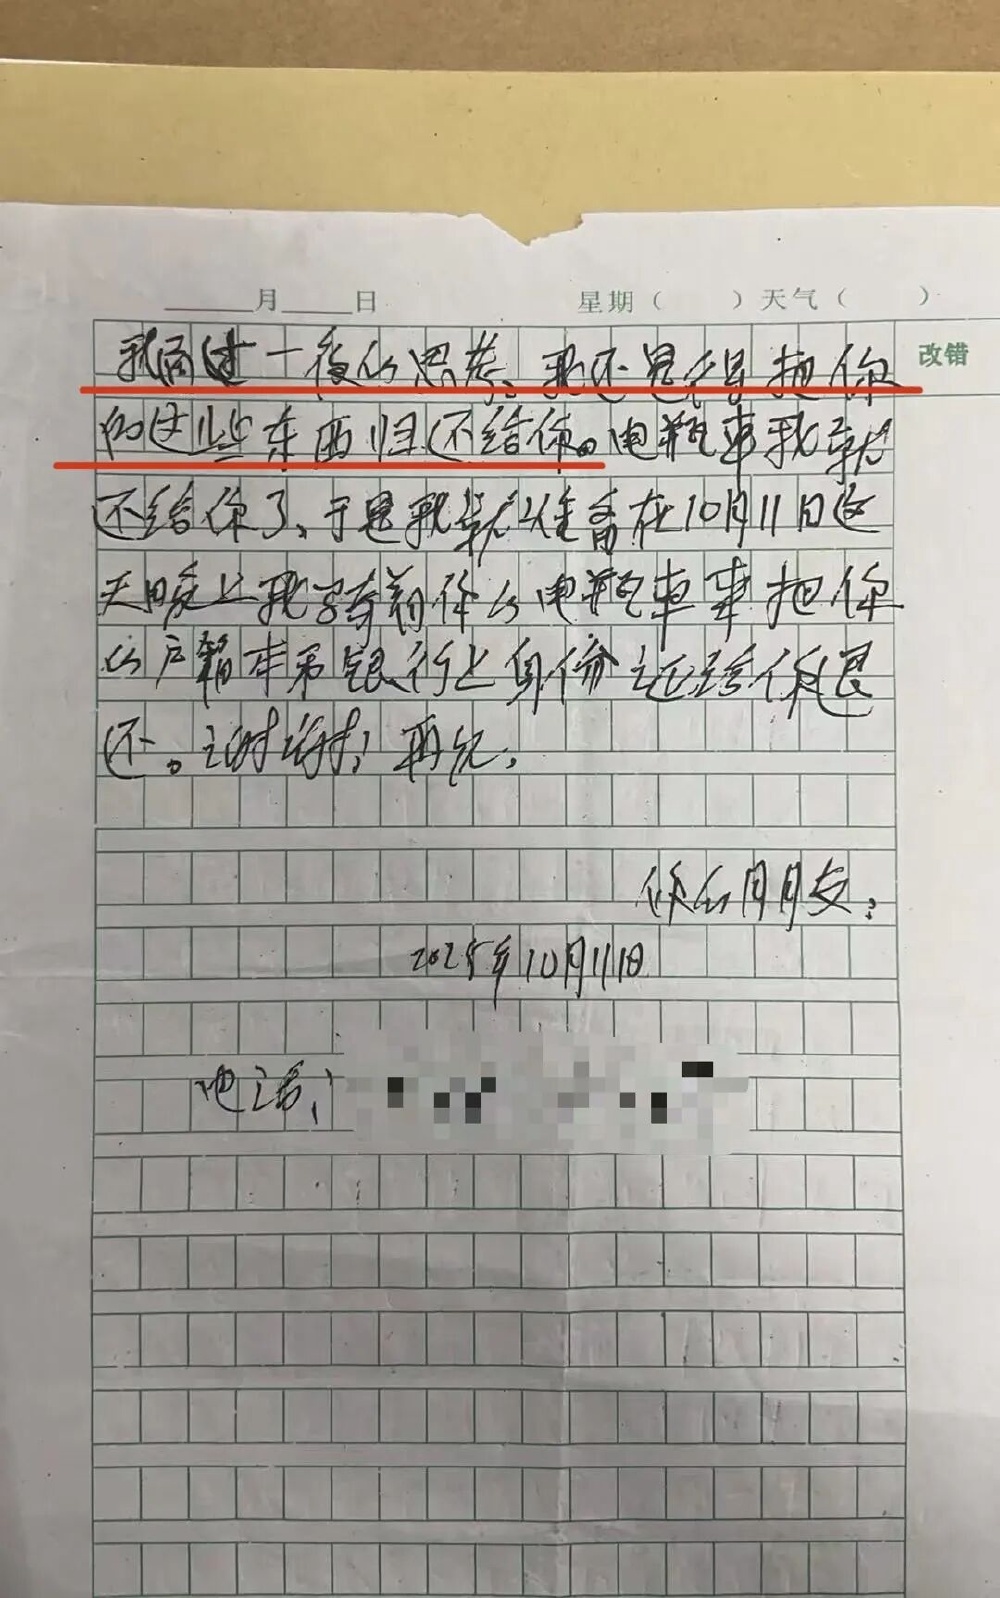 月 日 星期（ ）天气（ ）
改错
我商过一夜的思考、我还是得把你
的这些东西归还给你。电瓶车我就
不给你了、于是我就准备在10月11日这
天晚上我骑着你的电瓶车来把你
的户籍本和银行卡身份证给你退
还。谢谢！再见，
你的朋友：
2025年10月11日
电话：